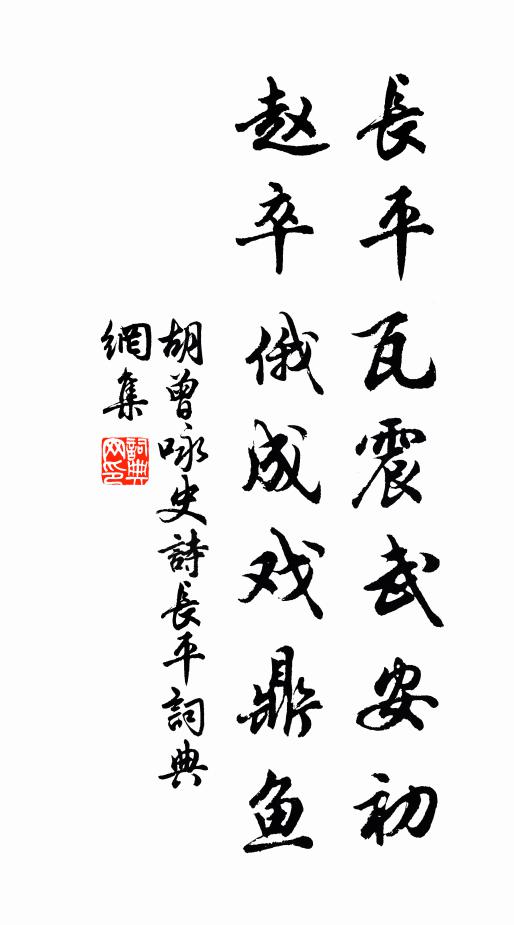 長平瓦震武安初
赵卒俄成戏鼎鱼
胡曾咏史詩長平詞典
網集
詞典
网印